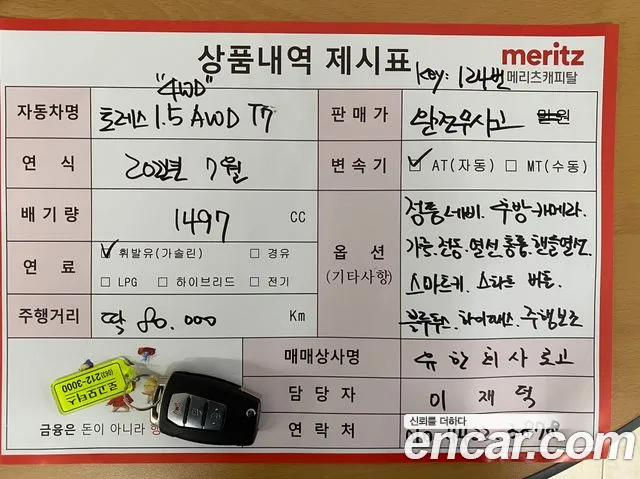 상품내역 제시표
meritz
메리츠캐피탈
Key: 124번
"4WD"
자동차명 토레스 1.5 AWD T7
판매가 완전무사고 만원
연식 2022년 7월
변속기 ☑ AT(자동) ☐ MT(수동)
배기량 1497 CC
옵션
(기타사항)
정품네비. 후방카메라.
가죽.전동.열선통풍.핸들열선.
스마트키. 스타트 버튼.
블루투스. 하이패스. 주행보조
연료 ☑ 휘발유(가솔린) ☐ 경유
☐ LPG ☐ 하이브리드 ☐ 전기
주행거리 딱 80.000 Km
매매상사명 유한회사 로고
담당자 이재덕
연락처
로고모터스
(063)212-3000
금융은 돈이 아니라
신뢰를 더하다
encar.com